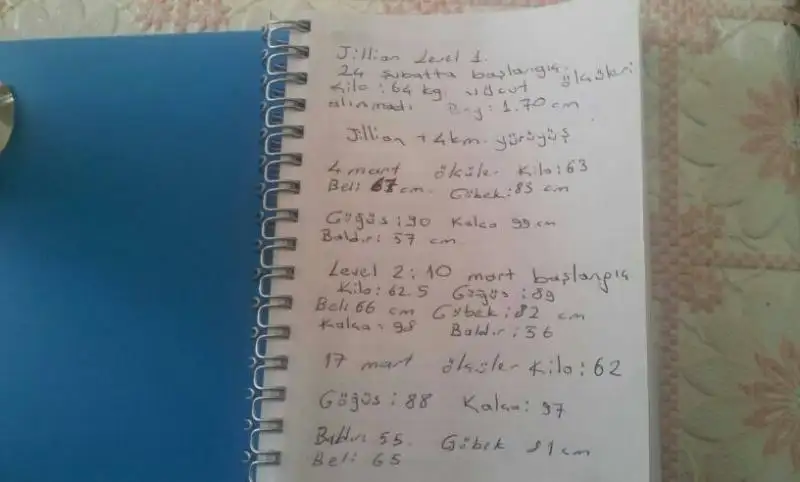 Jillian Level 1.
24 şubatta başlangıç.
Kilo: 64 kg vücut ölçüleri
alınmadı Boy: 1.70 cm
Jillian + 4km. yürüyüş
4 mart ölçüler Kilo: 63
Bel: 67 cm. Göbek: 83 cm
Göğüs: 90 Kalça 99 cm
Baldır: 57 cm
Level 2: 10 mart başlangıç
Kilo: 62.5 Göğüs: 89
Bel: 66 cm Göbek: 82 cm
Kalça: 98 Baldır: 56
17 mart ölçüler Kilo: 62
Göğüs: 88 Kalça: 97
Baldır 55. Göbek 81 cm
Bel: 65